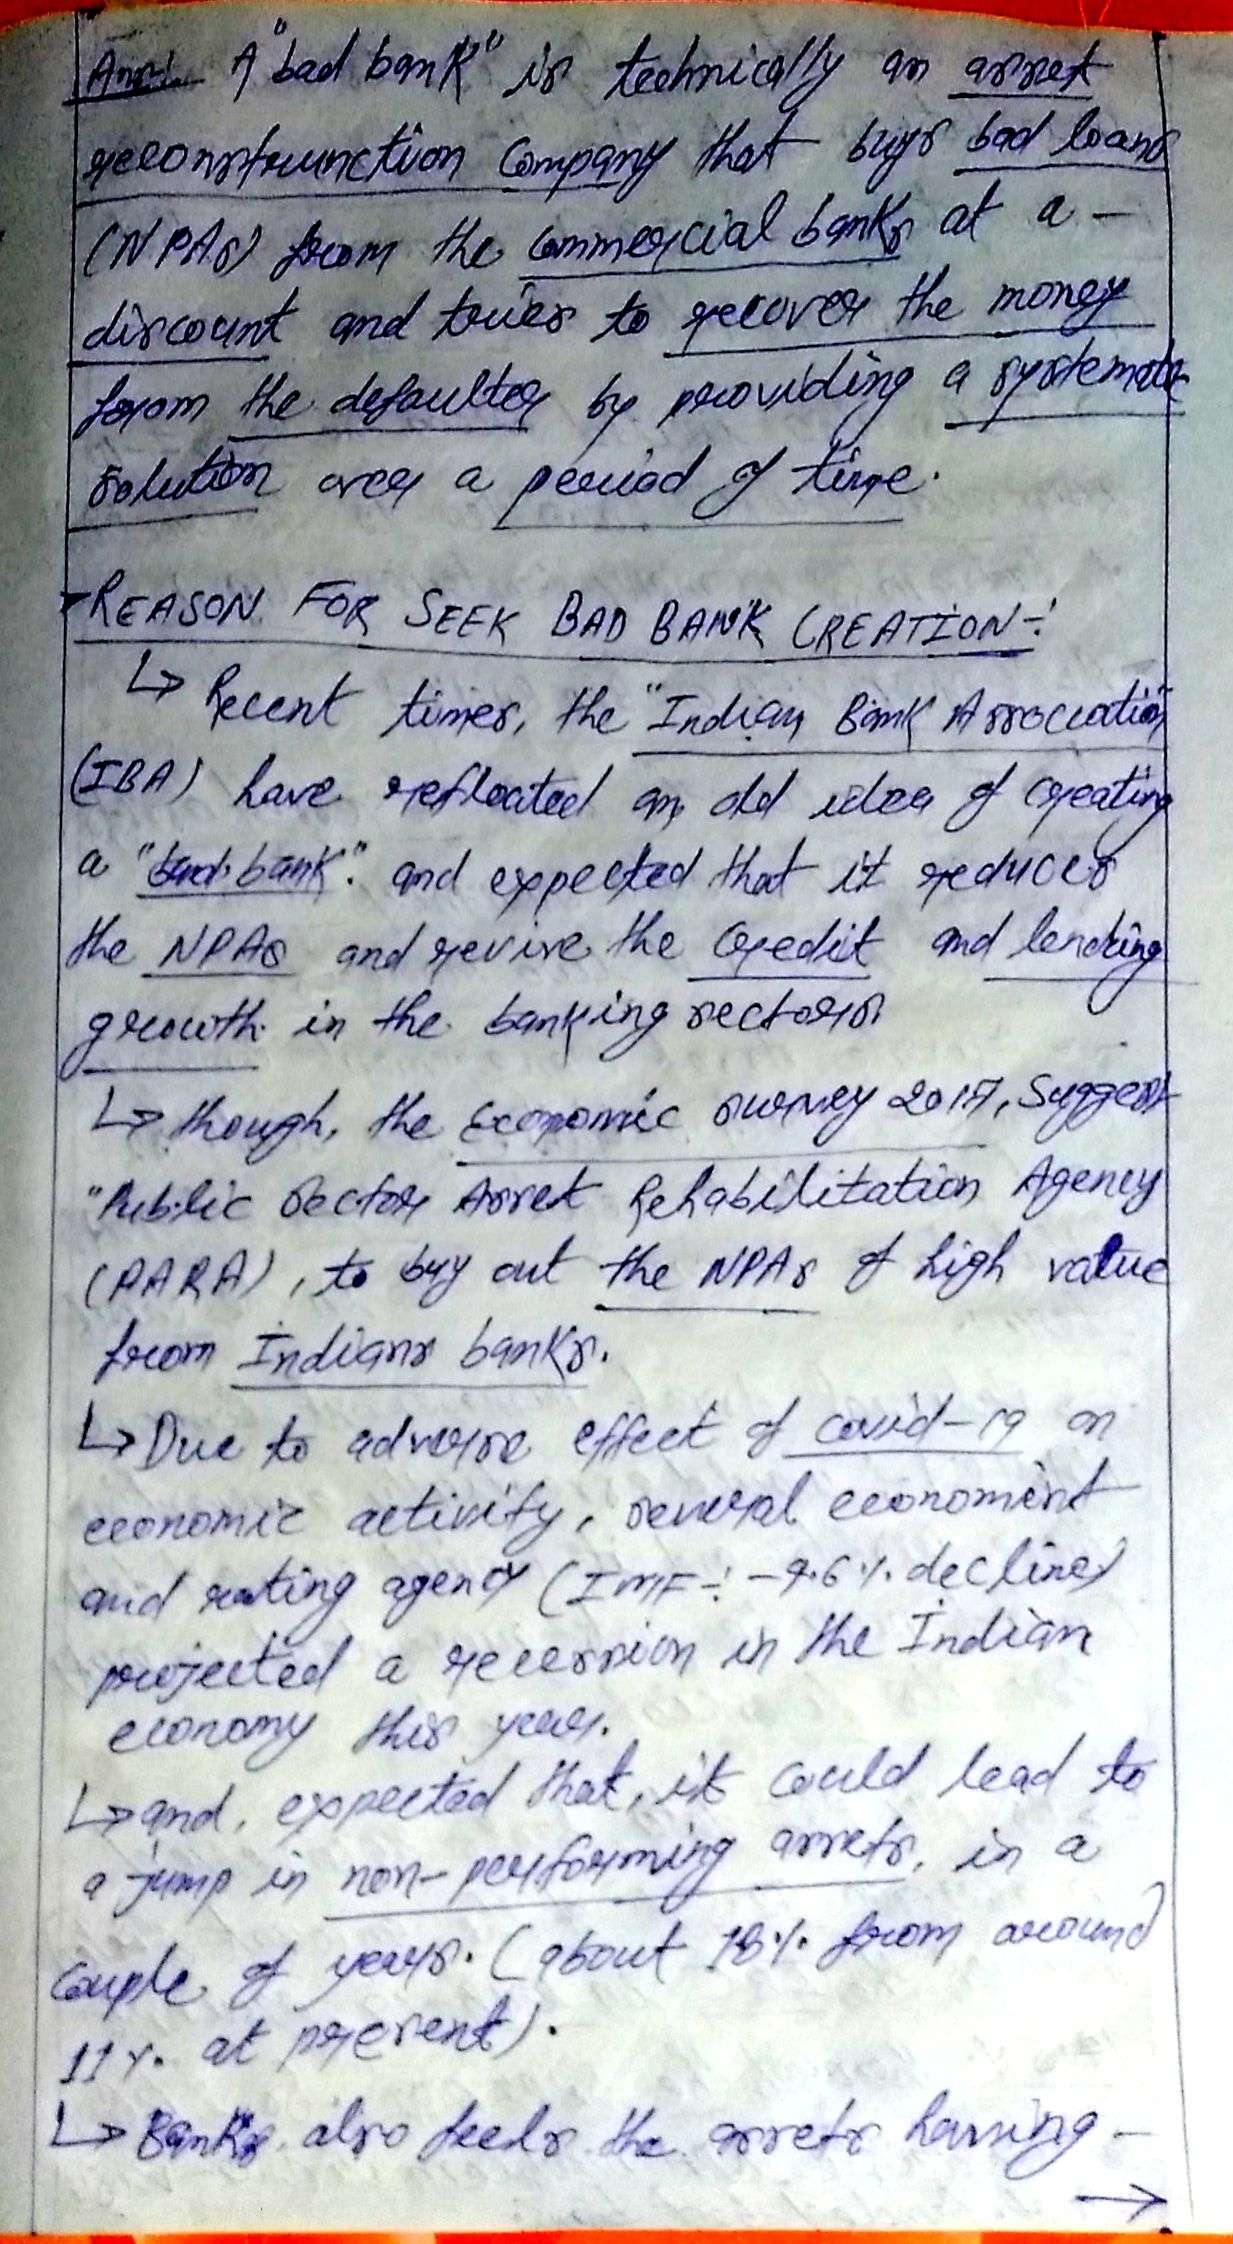 Ans:- A "bad bank" is technically an asset
reconstrunction Company that buys bad loans
(NPAs) from the commercial banks at a -
discount and tries to recover the money
from the defaulter by providing a systematic
solution over a period of time.
REASON FOR SEEK BAD BANK CREATION-:
↳ Recent times, the "Indian Bank Association"
(IBA) have refloated an old idea of creating
a "bad bank". and expected that it reduces
the NPAs and revive the credit and lending
growth in the banking sectors
↳ though, the Economic survey 2017, Suggest
"Public Sector Asset Rehabilitation Agency
(PARA), to buy out the NPAs of high value
from Indians banks.
↳ Due to adverse effect of covid-19 on
economic activity, several economist
and rating agency (IMF-: -9.6%. decline)
projected a recession in the Indian
economy this year.
↳ and, expected that, it could lead to
a jump in non-performing assets, in a
couple of years. (about 18%. from around
11%. at present).
↳ Banks also feels the assets having -
→